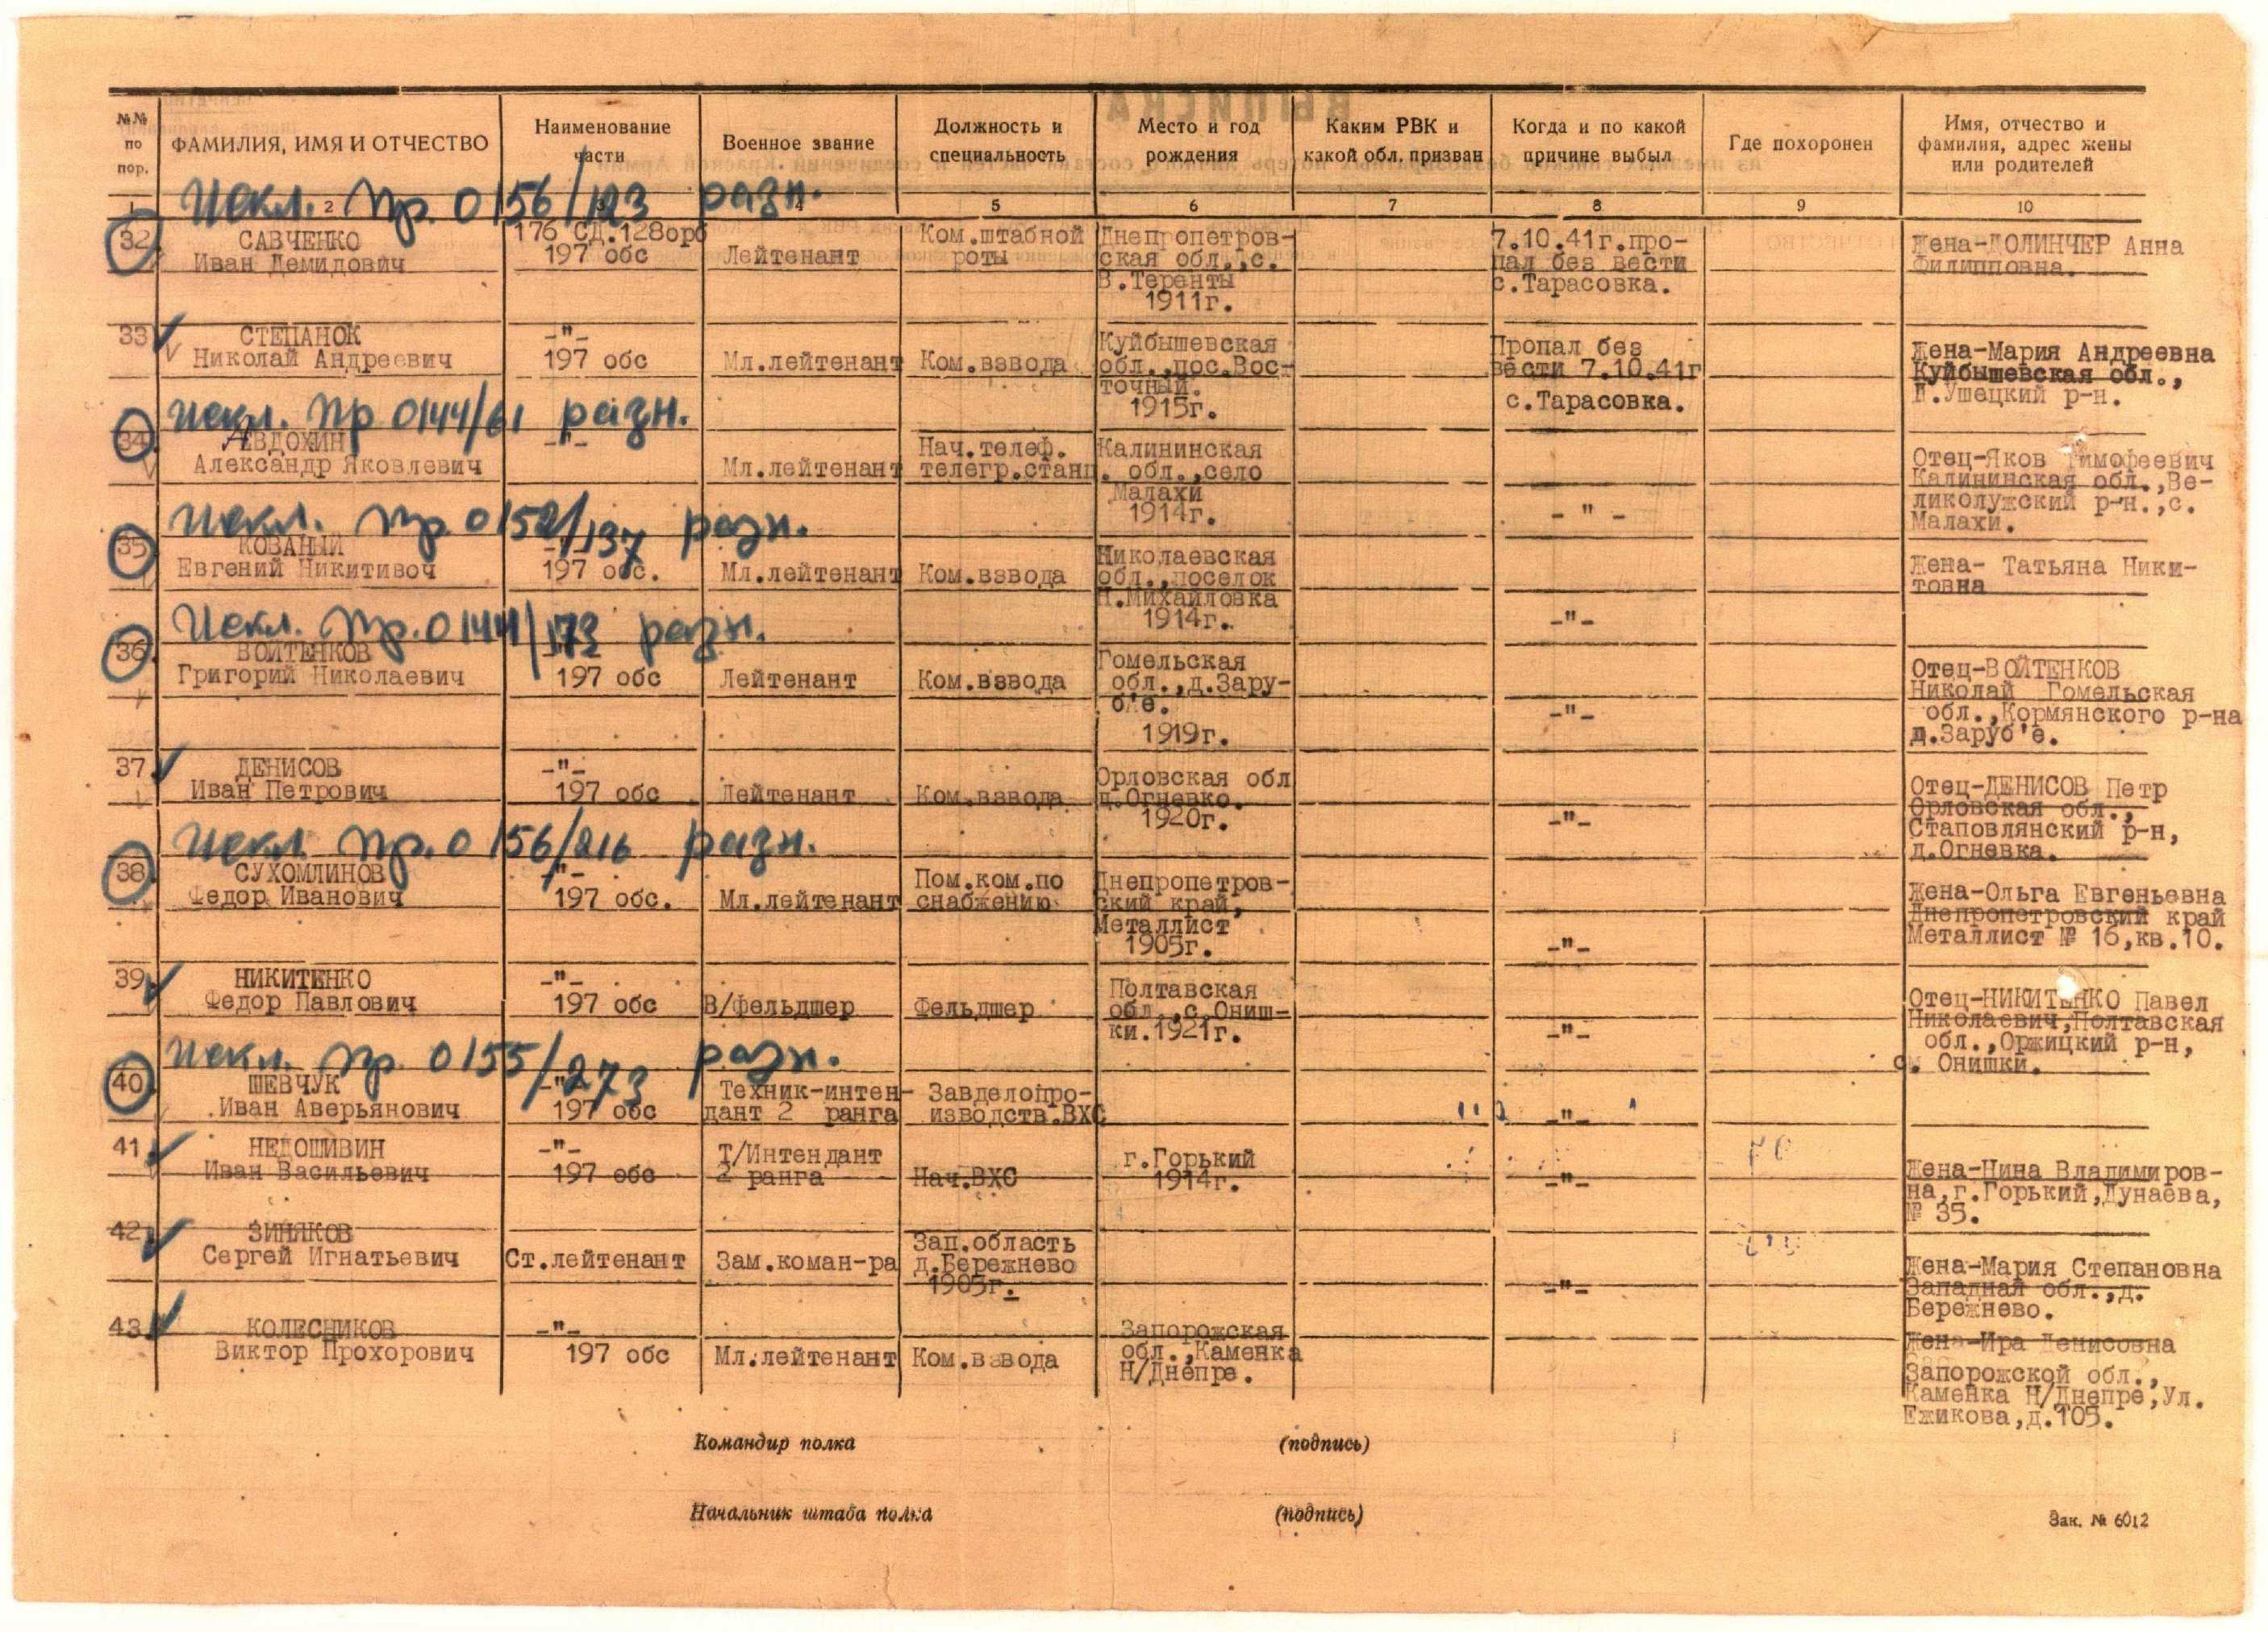 №№ по пор.
ФАМИЛИЯ, ИМЯ И ОТЧЕСТВО
Наименование части
Военное звание
Должность и специальность
Место и год рождения
Каким РВК и какой обл. призван
Когда и по какой причине выбыл
Где похоронен
Имя, отчество и фамилия, адрес жены или родителей
1 2 3 4 5 6 7 8 9 10
Искл. Пр. 0156/123 разн.
32
САВЧЕНКО
Иван Демидович
176 СД.128орб
197 обс
Лейтенант
Ком.штабной
роты
Днепропетров-
ская обл.,с.
В.Теренты
1911г.
7.10.41г.про-
пал без вести
с.Тарасовка.
Жена-ДОЛИНЧЕР Анна
Филипповна.
33
СТЕПАНОК
Николай Андреевич
-"-
197 обс
Мл.лейтенант
Ком.взвода
Куйбышевская
обл.,пос.Вос-
точный.
1915г.
Пропал без
вести 7.10.41г
с.Тарасовка.
Жена-Мария Андреевна
Куйбышевская обл.,
р-н.
Искл. Пр 0144/61 разн.
34
АВДОХИН
Александр Яковлевич
-"-
Мл.лейтенант
Нач.телеф.
телегр.станц.
Калининская
обл.,село
Малахи
1914г.
- " -
Отец-Яков Тимофеевич
Калининская обл.,Ве-
ликолужский р-н.,с.
Малахи.
Искл. Пр 0152/137 разн.
35
КОВАНЫЙ
Евгений Никитивоч
197 обс.
Мл.лейтенант
Ком.взвода
Николаевская
обл.,поселок
Н.Михайловка
1914г.
-"-
Жена- Татьяна Ники-
товна
Искл. Пр. 0144/173 разн.
36
ВОЙТЕНКОВ
Григорий Николаевич
197 обс
Лейтенант
Ком.взвода
Гомельская
обл.,д.Зару-
б'е.
1919г.
-"-
Отец-ВОЙТЕНКОВ
Николай Гомельская
обл.,Кормянского р-на
д.Заруб'е.
37
ДЕНИСОВ
Иван Петрович
-"-
197 обс
Лейтенант
Ком.взвода
Орловская обл
д.Огневко.
1920г.
-"-
Отец-ДЕНИСОВ Петр
Орловская обл.,
Стаповлянский р-н,
д.Огневка.
Искл. Пр. 0156/216 разн.
38
СУХОМЛИНОВ
Федор Иванович
-"-
197 обс.
Мл.лейтенант
Пом.ком.по
снабжению
Днепропетров-
ский край,
Металлист
1905г.
-"-
Жена-Ольга Евгеньевна
Днепропетровский край
Металлист № 16,кв.10.
39
НИКИТЕНКО
Федор Павлович
-"-
197 обс
В/фельдшер
Фельдшер
Полтавская
обл.,с.Ониш-
ки.1921г.
-"-
Отец-НИКИТЕНКО Павел
Николаевич,Полтавская
обл.,Оржицкий р-н,
с. Онишки.
Искл. Пр. 0155/273 разн.
40
ШЕВЧУК
Иван Аверьянович
-"-
197 обс
Техник-интен-
дант 2 ранга
Завделопро-
изводств.ВХС
-"-
41
НЕДОШИВИН
Иван Васильевич
-"-
197 обс
Т/Интендант
2 ранга
Нач.ВХС
г.Горький
1914г.
-"-
Жена-Нина Владимиров-
на,г.Горький,Дунаева,
№ 35.
42
ЗИНЯКОВ
Сергей Игнатьевич
Ст.лейтенант
Зам.коман-ра
Зап.область
д.Бережнево
1905г.
-"-
Жена-Мария Степановна
Западная обл.,д.
Бережнево.
43
КОЛЕСНИКОВ
Виктор Прохорович
-"-
197 обс
Мл.лейтенант
Ком.взвода
Запорожская
обл.,Каменка
Н/Днепре.
Жена-Ира Денисовна
Запорожской обл.,
Каменка Н/Днепре,Ул.
Ежикова,д.105.
Командир полка (подпись)
Начальник штаба полка (подпись)
Зак. № 6012